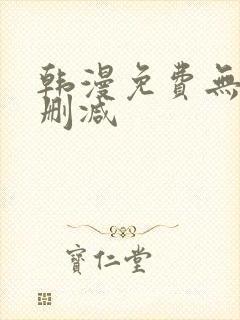 韩漫免費無
刪减
寶仁堂